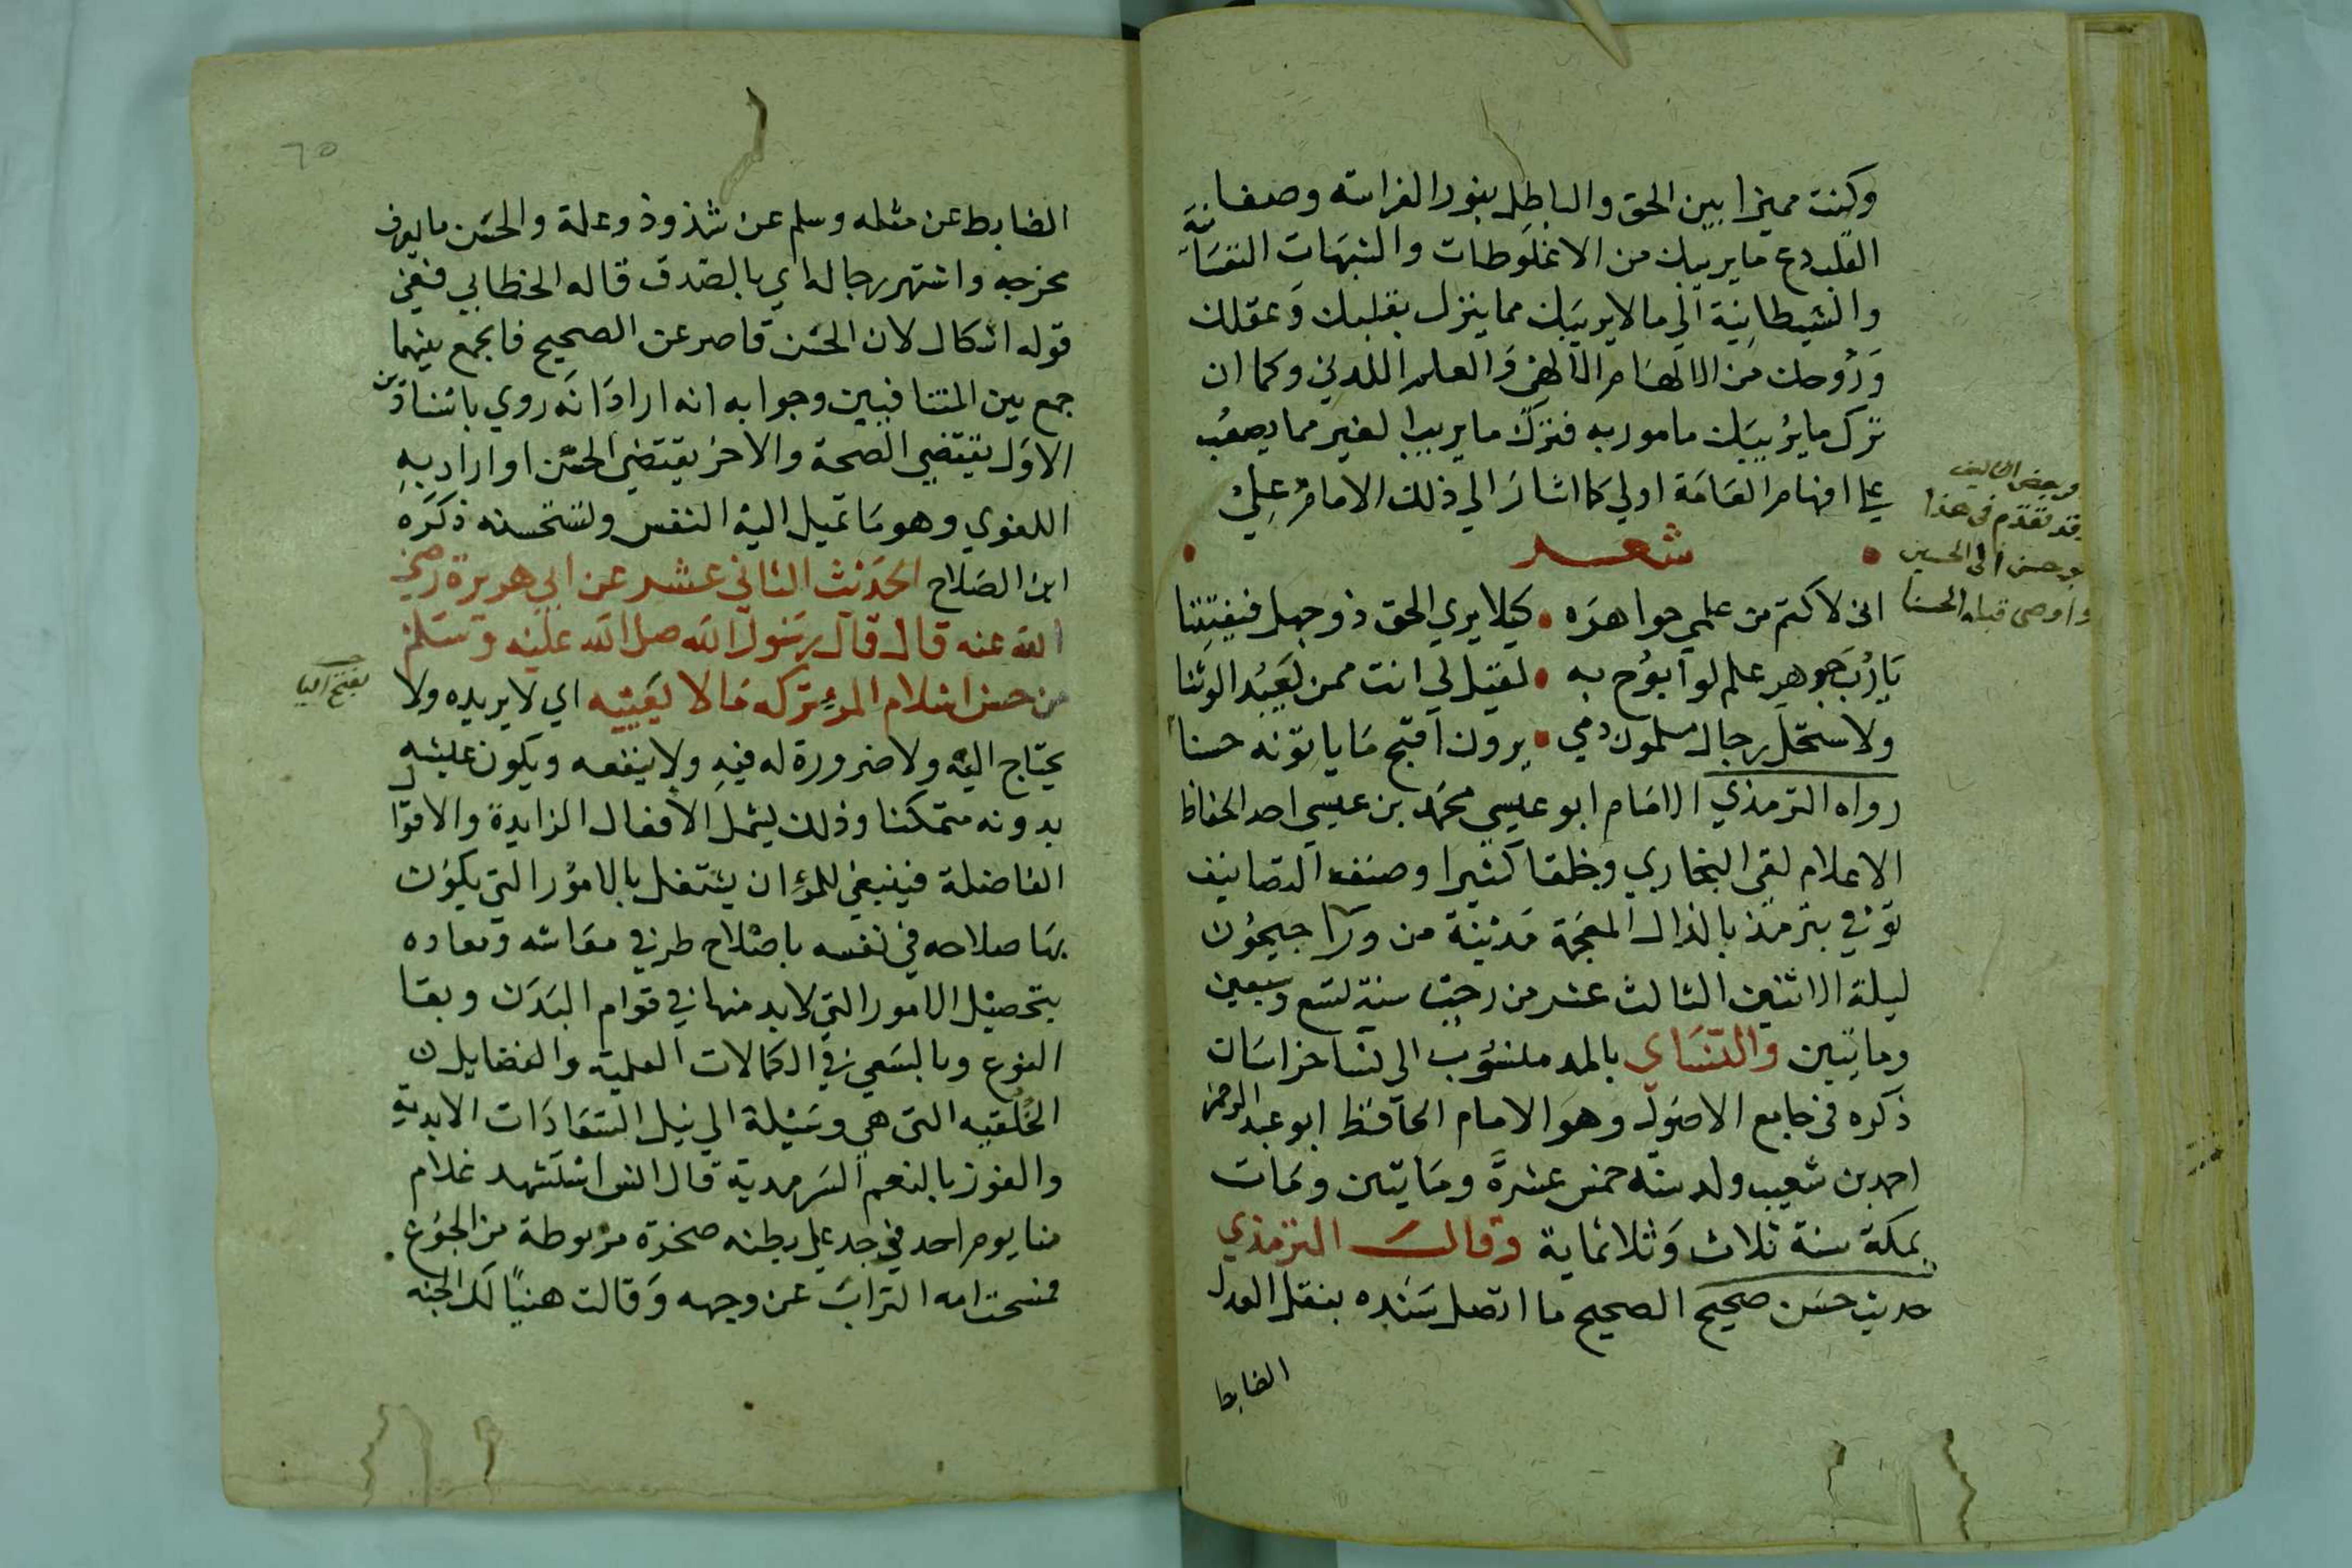 وكنت مميزا بين الحق والباطل بنور الفراسة وصفا
القلب دع ما يريبك من الاغلوطات والشبهات النفسانية
والشيطانية الي ما لا يريبك مما ينزل بقلبك وعقلك
وروحك من الالهام الالهي والعلم اللدني وكما ان
ترك ما يريبك مامور به فترك ما يريب الغير مما يصعب
علي افهام العامة اولي كما اشار الي ذلك الامام علي
شعر
اني لاكتم من علمي جواهره • كيلا يري الحق ذو جهل فيفتتنا
يا رب جوهر علم لو ابوح به • لقيل لي انت ممن يعبد الوثنا
ولاستحل رجال مسلمون دمي • يرون اقبح ما ياتونه حسنا
رواه الترمذي الامام ابو عيسي محمد بن عيسي احد الحفاظ
الاعلام لقي البخاري وخلقا كثيرا وصنف التصانيف
توفي بترمذ بالذال المعجمة مدينة من ورآ جيحون
ليلة الاثنين الثالث عشر من رجب سنة تسع وسبعين
وماتيين والنساي بالمد منسوب الي نسا خراسان
ذكره في جامع الاصول وهو الامام الحافظ ابو عبد الرحمن
احمد بن شعيب ولد سنه خمس عشرة ومايتين ومات
بمكة سنة ثلاث وثلاثماية وقال الترمذي
حديث حسن صحيح الصحيح ما اتصل سنده بنقل العدل
الضابط
وقد تقدم في هذا
ابو حسن الي الحسين
واوصي قبله الحسنا
٦٥
الضابط عن مثله وسلم عن شذوذ وعلة والحسن ما يعرف
مخرجه واشتهر رجاله اي بالصدق قاله الخطابي ففي
قوله اشكال لان الحسن قاصر عن الصحيح فالجمع بينهما
جمع بين المتنافيين وجوابه انه اراد انه روي باسنادين
الاول يقتضي الصحة والاخر يقتضي الحسن او اراد به
اللغوي وهو ما تميل اليه النفس وتستحسنه ذكره
ابن الصلاح الحديث الثاني عشر عن ابي هريرة رضي
الله عنه قال قال رسول الله صلي الله عليه وسلم
من حسن اسلام المرء تركه ما لا يعنيه اي لا يريده ولا
يحتاج اليه ولا ضرورة له فيه ولا ينفعه ويكون عليشه
بدونه متمكنا وذلك يشمل الافعال الزايدة والاقوال
الفاضلة فينبغي للمرء ان يشتغل بالامور التي يكون
بها صلاحه في نفسه باصلاح طرفي معاشه ومعاده
بتحصيل الامور التي لا بد منها في قوام البدن وبقا
النوع وبالسعي في الكمالات العلمية والفضايل
الخلقيه التي هي وسيلة الي نيل السعادات الابدية
والفوز بالنعم السرمدية قال انس استشهد غلام
منا يوم احد فوجد علي بطنه صخرة مربوطة من الجوع
فمسحت امه التراب عن وجهه وقالت هنيا لك الجنه
بفتح اليا